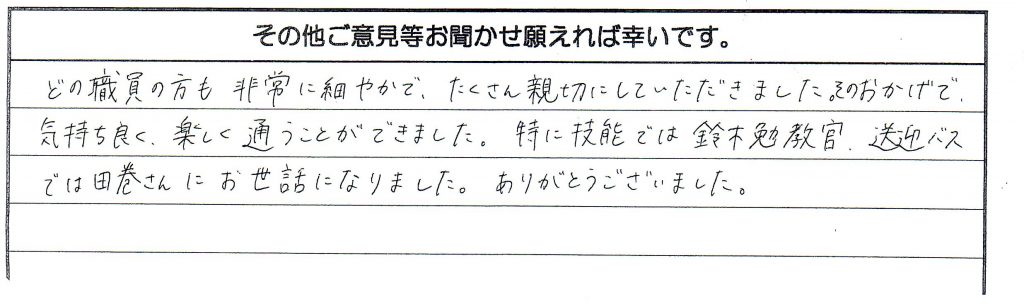 その他ご意見等お聞かせ願えれば幸いです。
どの職員の方も非常に細やかで、たくさん親切にしていただきました。そのおかげで、
気持ち良く、楽しく通うことができました。特に技能では鈴木勉教官、送迎バス
では田巻さんにお世話になりました。ありがとうございました。